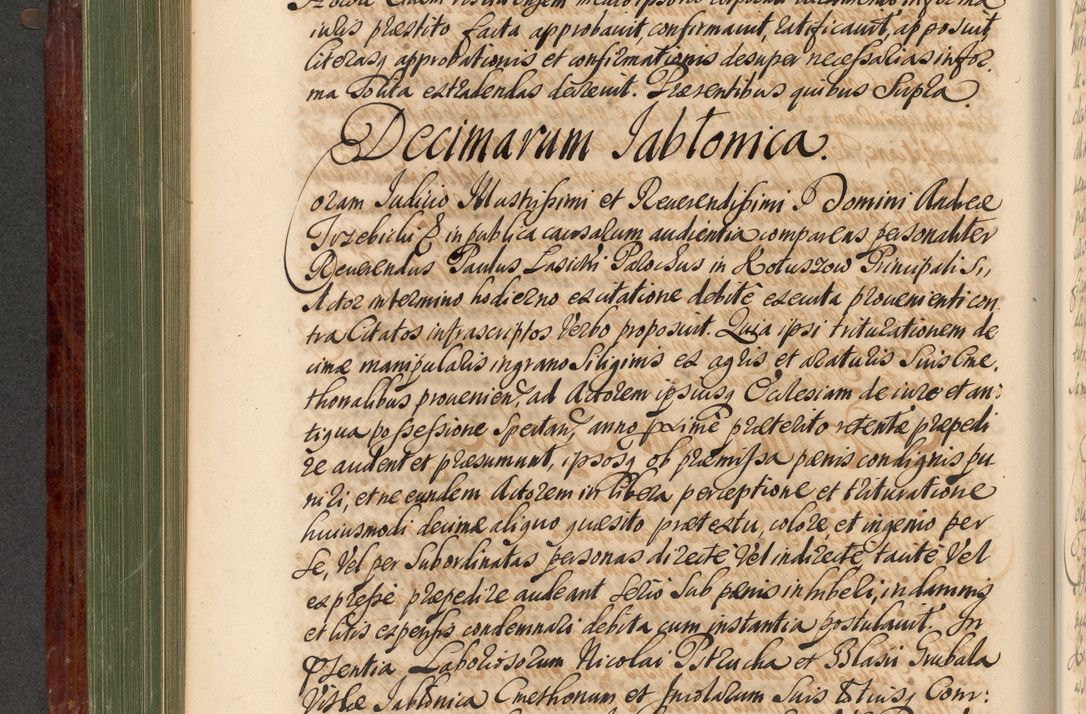 iulis præstito facta approbauit, confirmauit, ratificauit, apposuit
literasq approbationis et confirmationis desuper necessarias in for
ma solita extradendas decreuit. Presentibus quibus supra
Decimarum Jabłonica.
Coram Judicio Illustrissimi et Reuerendissimi D Domini Andreæ
Trzebicki & in publica causarum audientia comparens personaliter
Reuerendus Paulus Lasicki Parochus in Kotuszow Principalis,
Actor in termino hodierno ex citatione debitè executa proueniente con
tra Citatos infrascriptos Verbo proposuit. Quia ipsi triturationem de
cimæ manipularis in grano siliginis ex agris et araturis suis Cme,
thonalibus prouenien, ad Actorem ipsiusq Ecclesiam de iure et an:
tiqua possessione spectan, anno proximè præterito retentæ præpedi
re audent et præsumunt, ipsosq ob præmissa pænis condignis pu
niri, et ne eundem Actorem in libera perceptione et trituratione
huiusmodi decimæ aliquo quæsito prætextu, colore, et ingenio per
se, Vel per subordinatas personas directè Vel indirectè tacitè Vel
expressè præpedire audeant serio sub pænis inhiberi, in damnis
et litis expensis condemnari debita cum instantia postulauit. In
Psentia Laboriosorum Nicolai Pstrucha et Blasii Grabala
Villæ Jabłonica Cmethonum et Incolarum suis & tuisq Com: